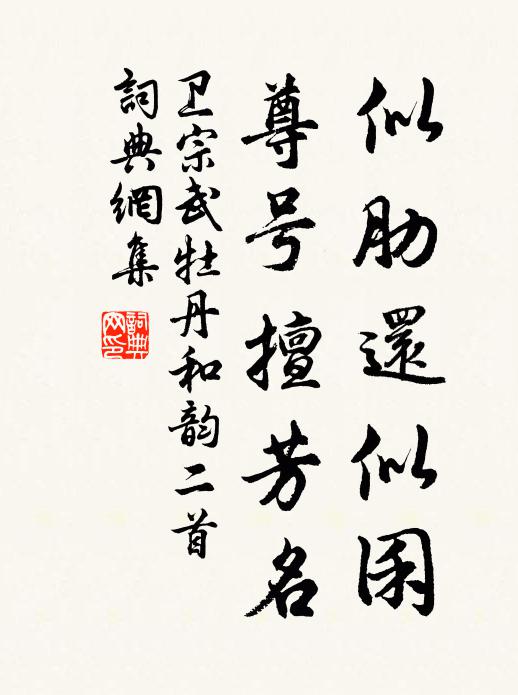 似肋還似
尊号擅芳名
卫宗武牡丹和韵二首
詞典網集
詞典
网印